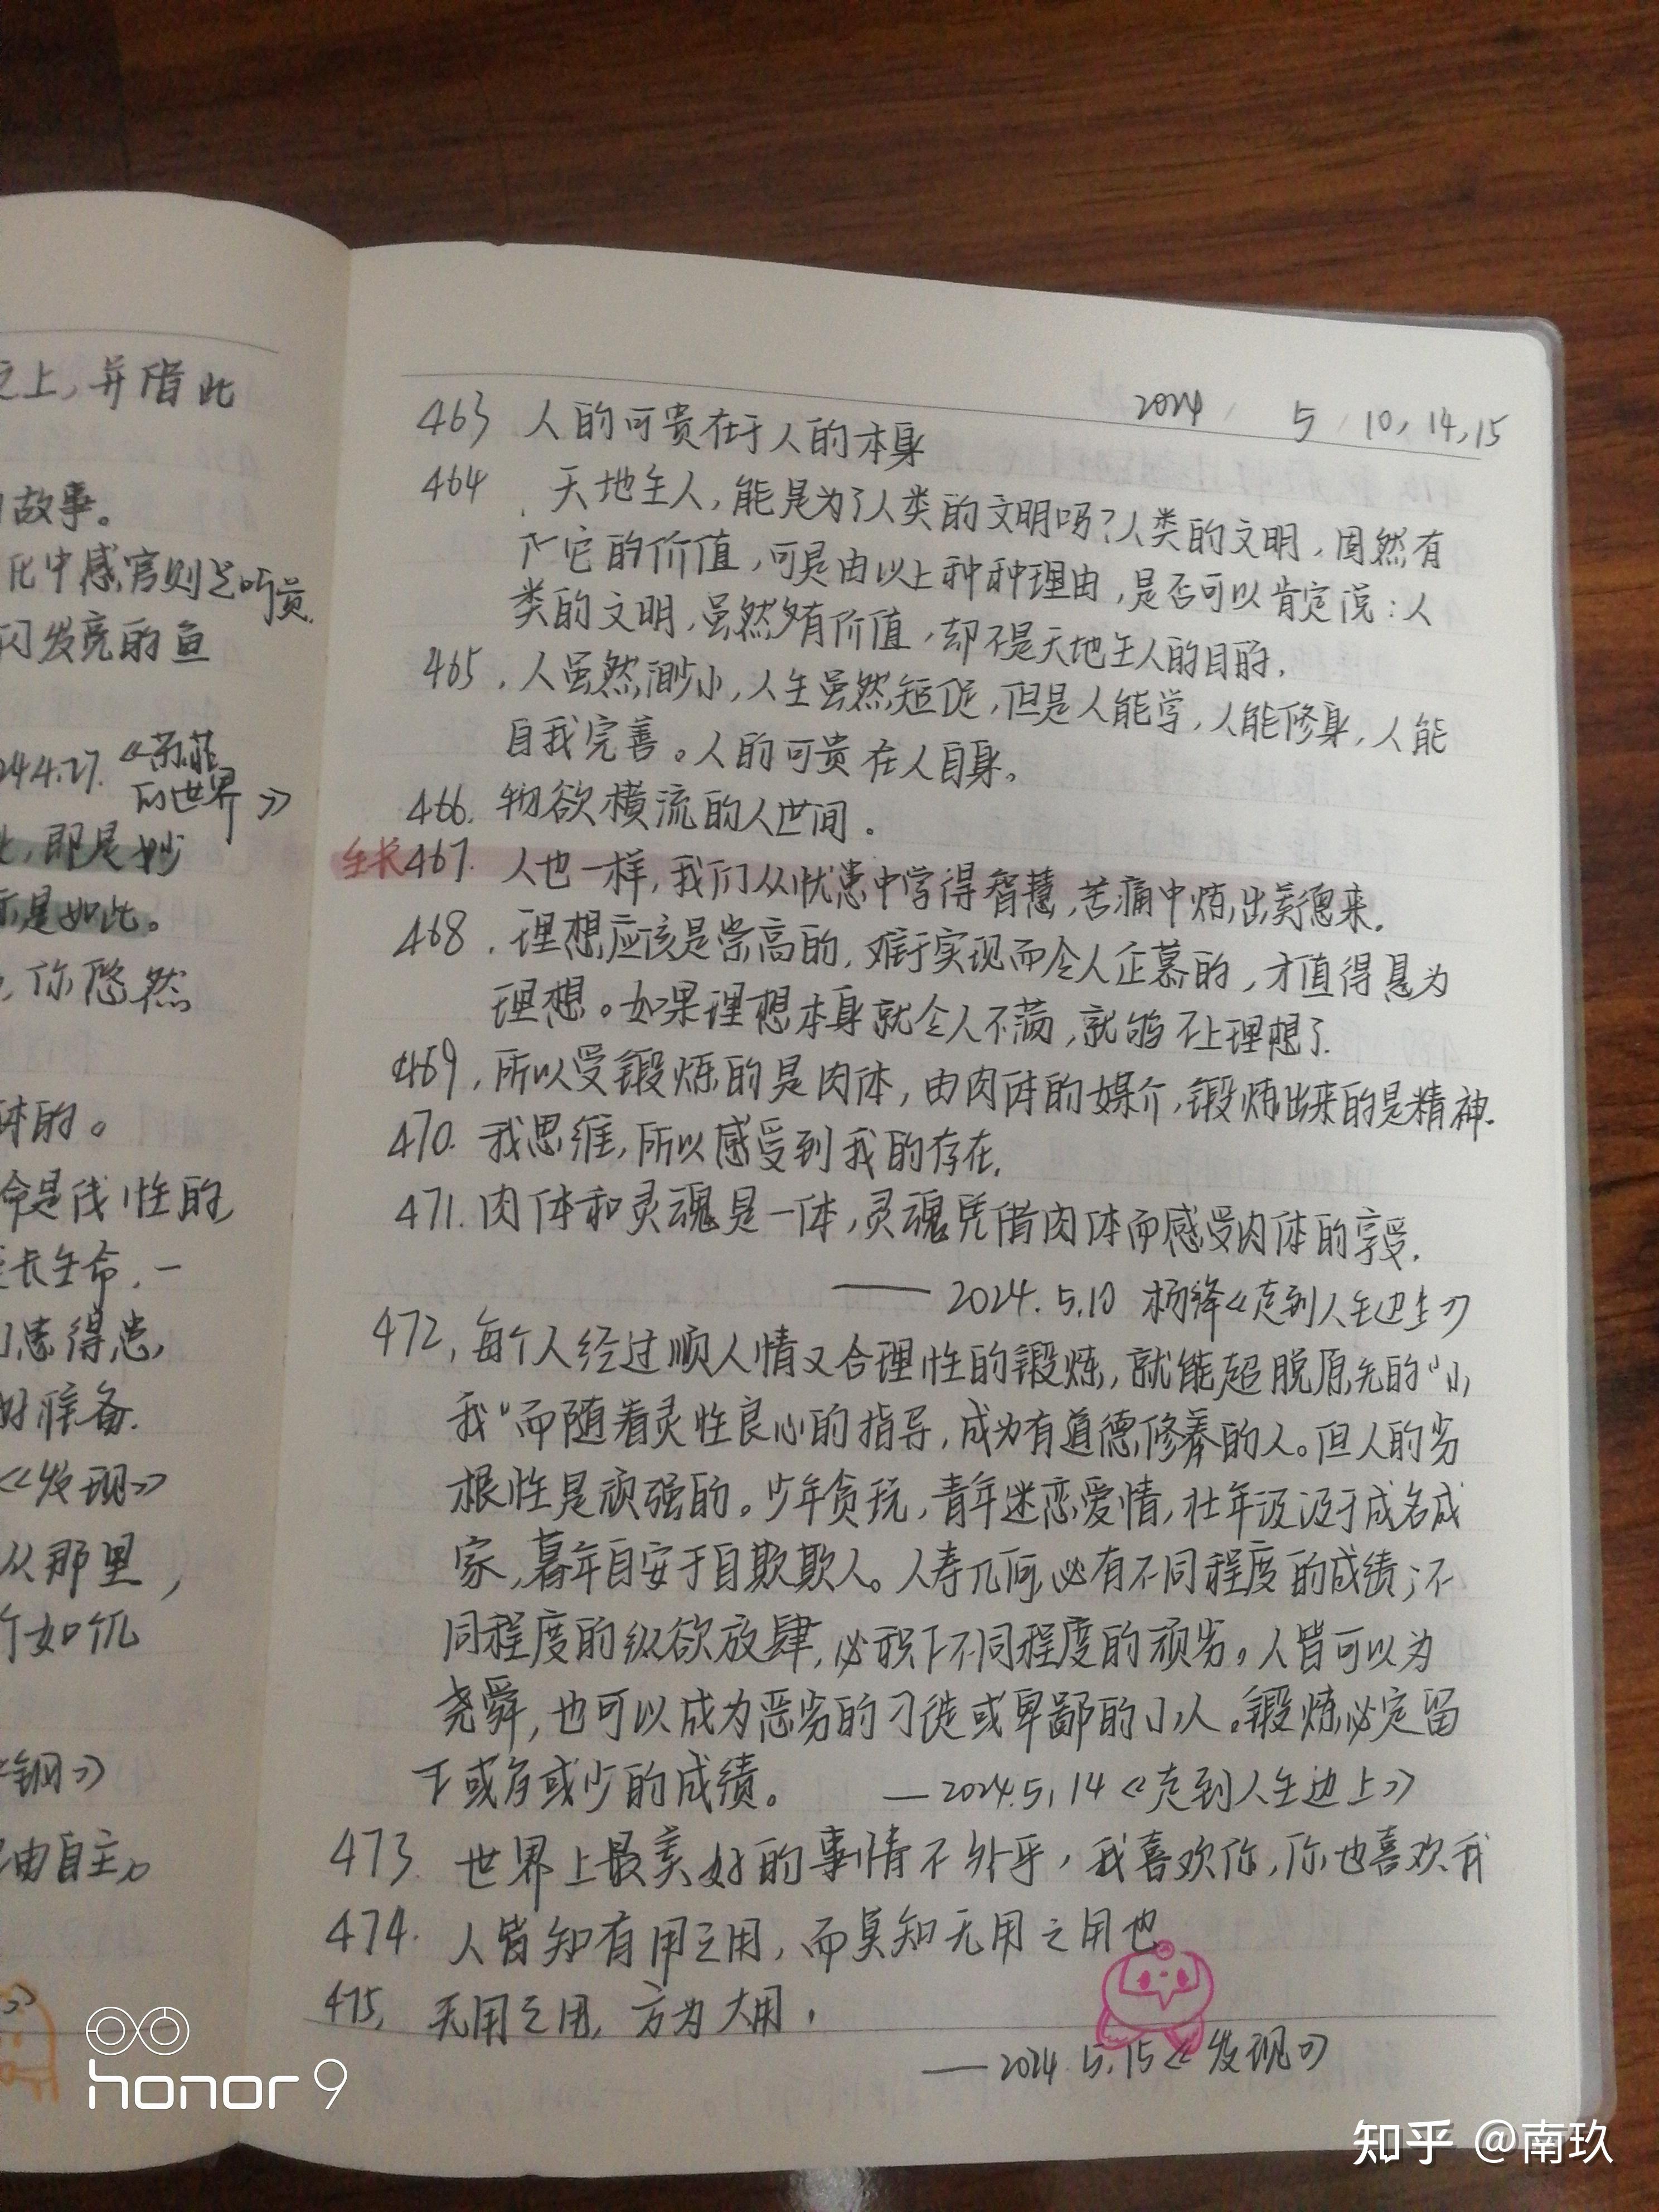 之上,并借此
故事。
化中感官则是听觉.
闪发亮的鱼
24.4.27.《苏菲
的世界》
即是妙
亦是如此。
,你悠然
体的。
命是伐性的
长生命,一
患得患,
好准备.
《发现》
从那里,
个如饥
钢》
由自主。
2024 / 5 / 10, 14, 15
463 人的可贵在于人的本身
464 天地生人,能是为了人类的文明吗?人类的文明,固然有
它的价值,可是由以上种种理由,是否可以肯定说:人
类的文明,虽然有价值,却不是天地生人的目的.
465. 人虽然渺小,人生虽然短促,但是人能学,人能修身,人能
自我完善。人的可贵在人自身。
466. 物欲横流的人世间。
生长 467. 人也一样,我们从忧患中学得智慧,苦痛中炼出美德来.
468. 理想应该是崇高的,难于实现而令人企慕的,才值得悬为
理想。如果理想本身就令人不满,就够不上理想了.
469. 所以受锻炼的是肉体,由肉体的媒介,锻炼出来的是精神.
470. 我思维,所以感受到我的存在.
471. 肉体和灵魂是一体,灵魂凭借肉体而感受肉体的享受.
——2024.5.10 杨绛《走到人生边上》
472. 每个人经过顺人情又合理性的锻炼,就能超脱原先的“小
我”而随着灵性良心的指导,成为有道德修养的人。但人的劣
根性是顽强的。少年贪玩,青年迷恋爱情,壮年汲汲于成名成
家,暮年自安于自欺欺人。人寿几何,必有不同程度的成绩;不
同程度的纵欲放肆,必积下不同程度的顽劣。人皆可以为
尧舜,也可以成为恶劣的刁徒或卑鄙的小人。锻炼必定留
下或多或少的成绩。 —2024.5.14《走到人生边上》
473. 世界上最美好的事情不外乎,我喜欢你,你也喜欢我
474. 人皆知有用之用,而莫知无用之用也
475. 无用之用,方为大用.
——2024.5.15《发现》
honor 9
知乎 @南玖